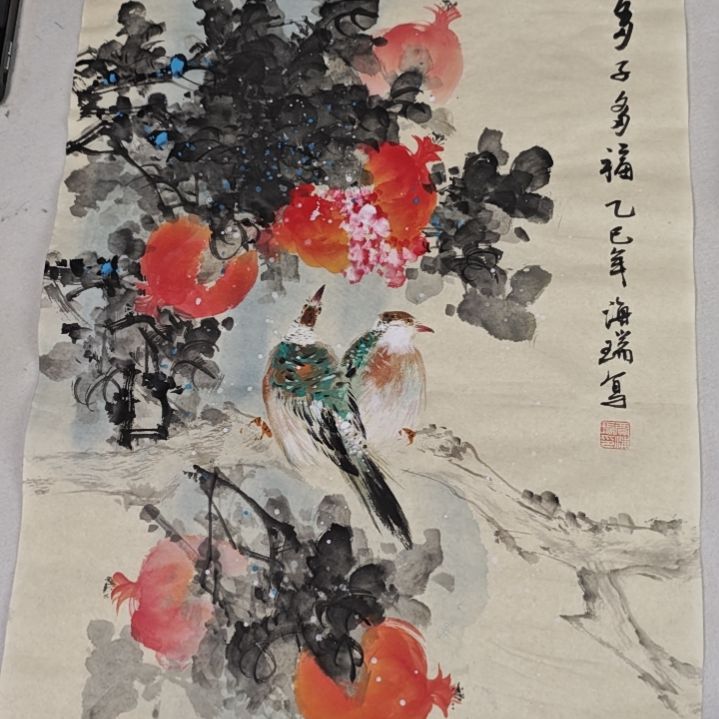 多子多福 乙巳年 海瑞写